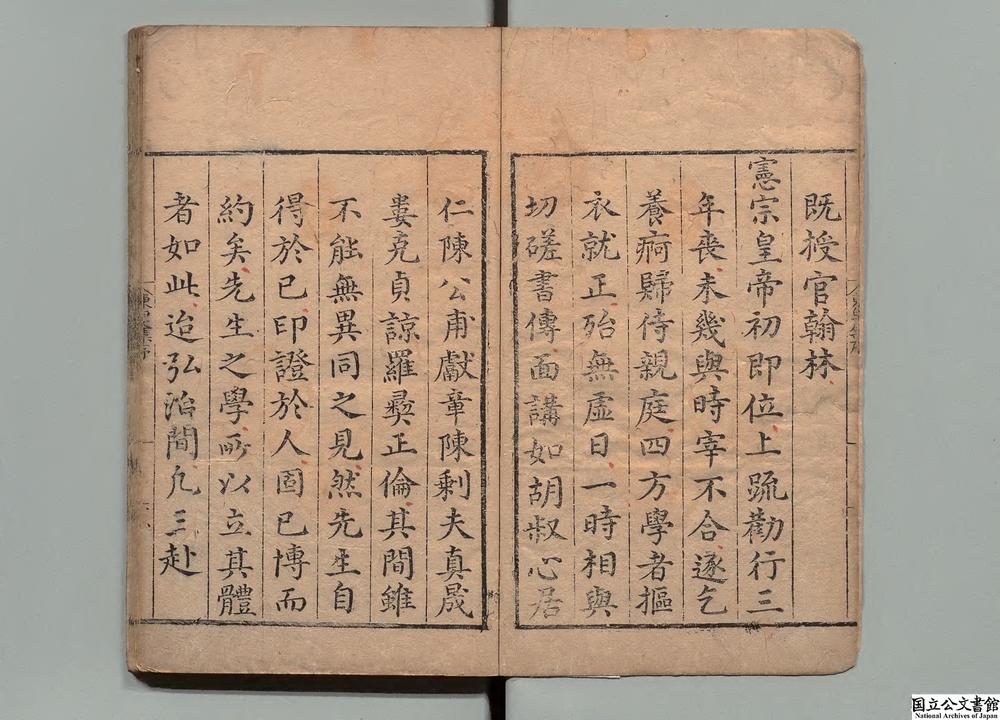 既授官翰林
憲宗皇帝初即位上䟽勸行三
年喪未幾與時宰不合遂乞
養痾歸侍親庭四方學者摳
衣就正殆無虛日一時相與
切磋書傳面講如胡叔心居
仁陳公甫獻章陳剩夫真晟
婁克貞諒羅彝正倫其間雖
不能無異同之見然先生自
得於已印證於人固已博而
約矣先生之學所以立其體
者如此迨弘治間凡三赴
国立公文書館
National Archives of Japan